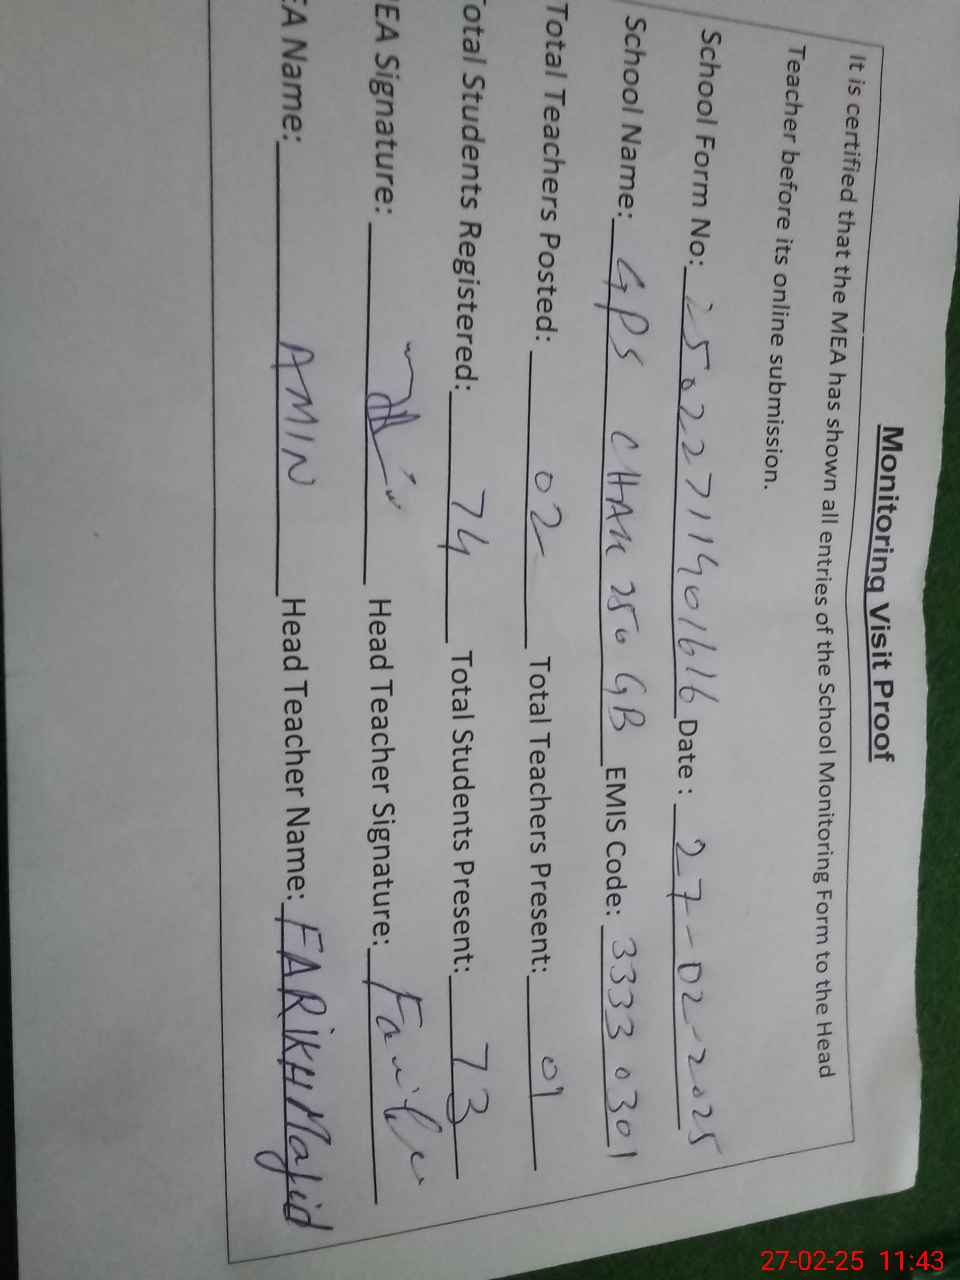 Monitoring Visit Proof
It is certified that the MEA has shown all entries of the School Monitoring Form to the Head
Teacher before its online submission.
School Form No: 25022711401616 Date : 27-02-2025
School Name: GPS CHAK 250 GB EMIS Code: 33330301
Total Teachers Posted: 02 Total Teachers Present: 01
Total Students Registered: 74 Total Students Present: 73
MEA Signature: Head Teacher Signature:
EA Name: AMIN Head Teacher Name: FARIKH Majid
27-02-25 11:43